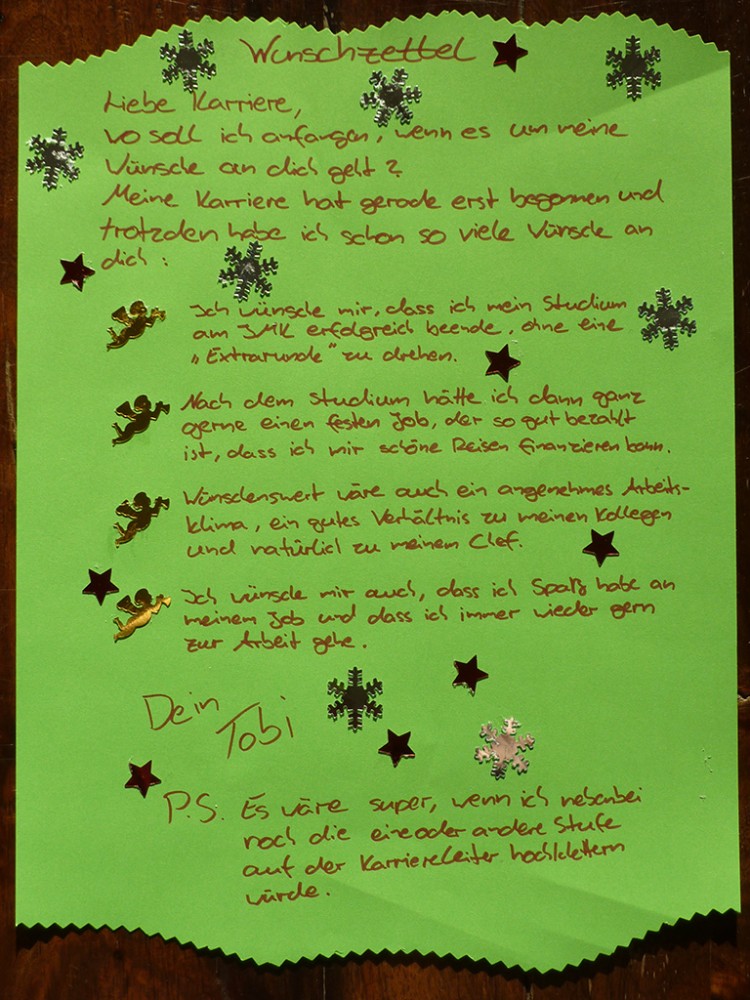 Wunschzettel
Liebe Karriere,
wo soll ich anfangen, wenn es um meine
Wünsche an dich geht?
Meine Karriere hat gerade erst begonnen und
trotzdem habe ich schon so viele Wünsche an
dich:
Ich wünsche mir, dass ich mein Studium
am JMK erfolgreich beende, ohne eine
„Extrarunde" zu drehen.
Nach dem Studium hätte ich dann ganz
gerne einen festen Job, der so gut bezahlt
ist, dass ich mir schöne Reisen finanzieren kann.
Wünschenswert wäre auch ein angenehmes Arbeits-
klima, ein gutes Verhältnis zu meinen Kollegen
und natürlich zu meinem Chef.
Ich wünsche mir auch, dass ich Spaß habe an
meinem Job und dass ich immer wieder gern
zur Arbeit gehe.
Dein
Tobi
P.S. Es wäre super, wenn ich nebenbei
noch die eine oder andere Stufe
auf der Karriereleiter hochklettern
würde.